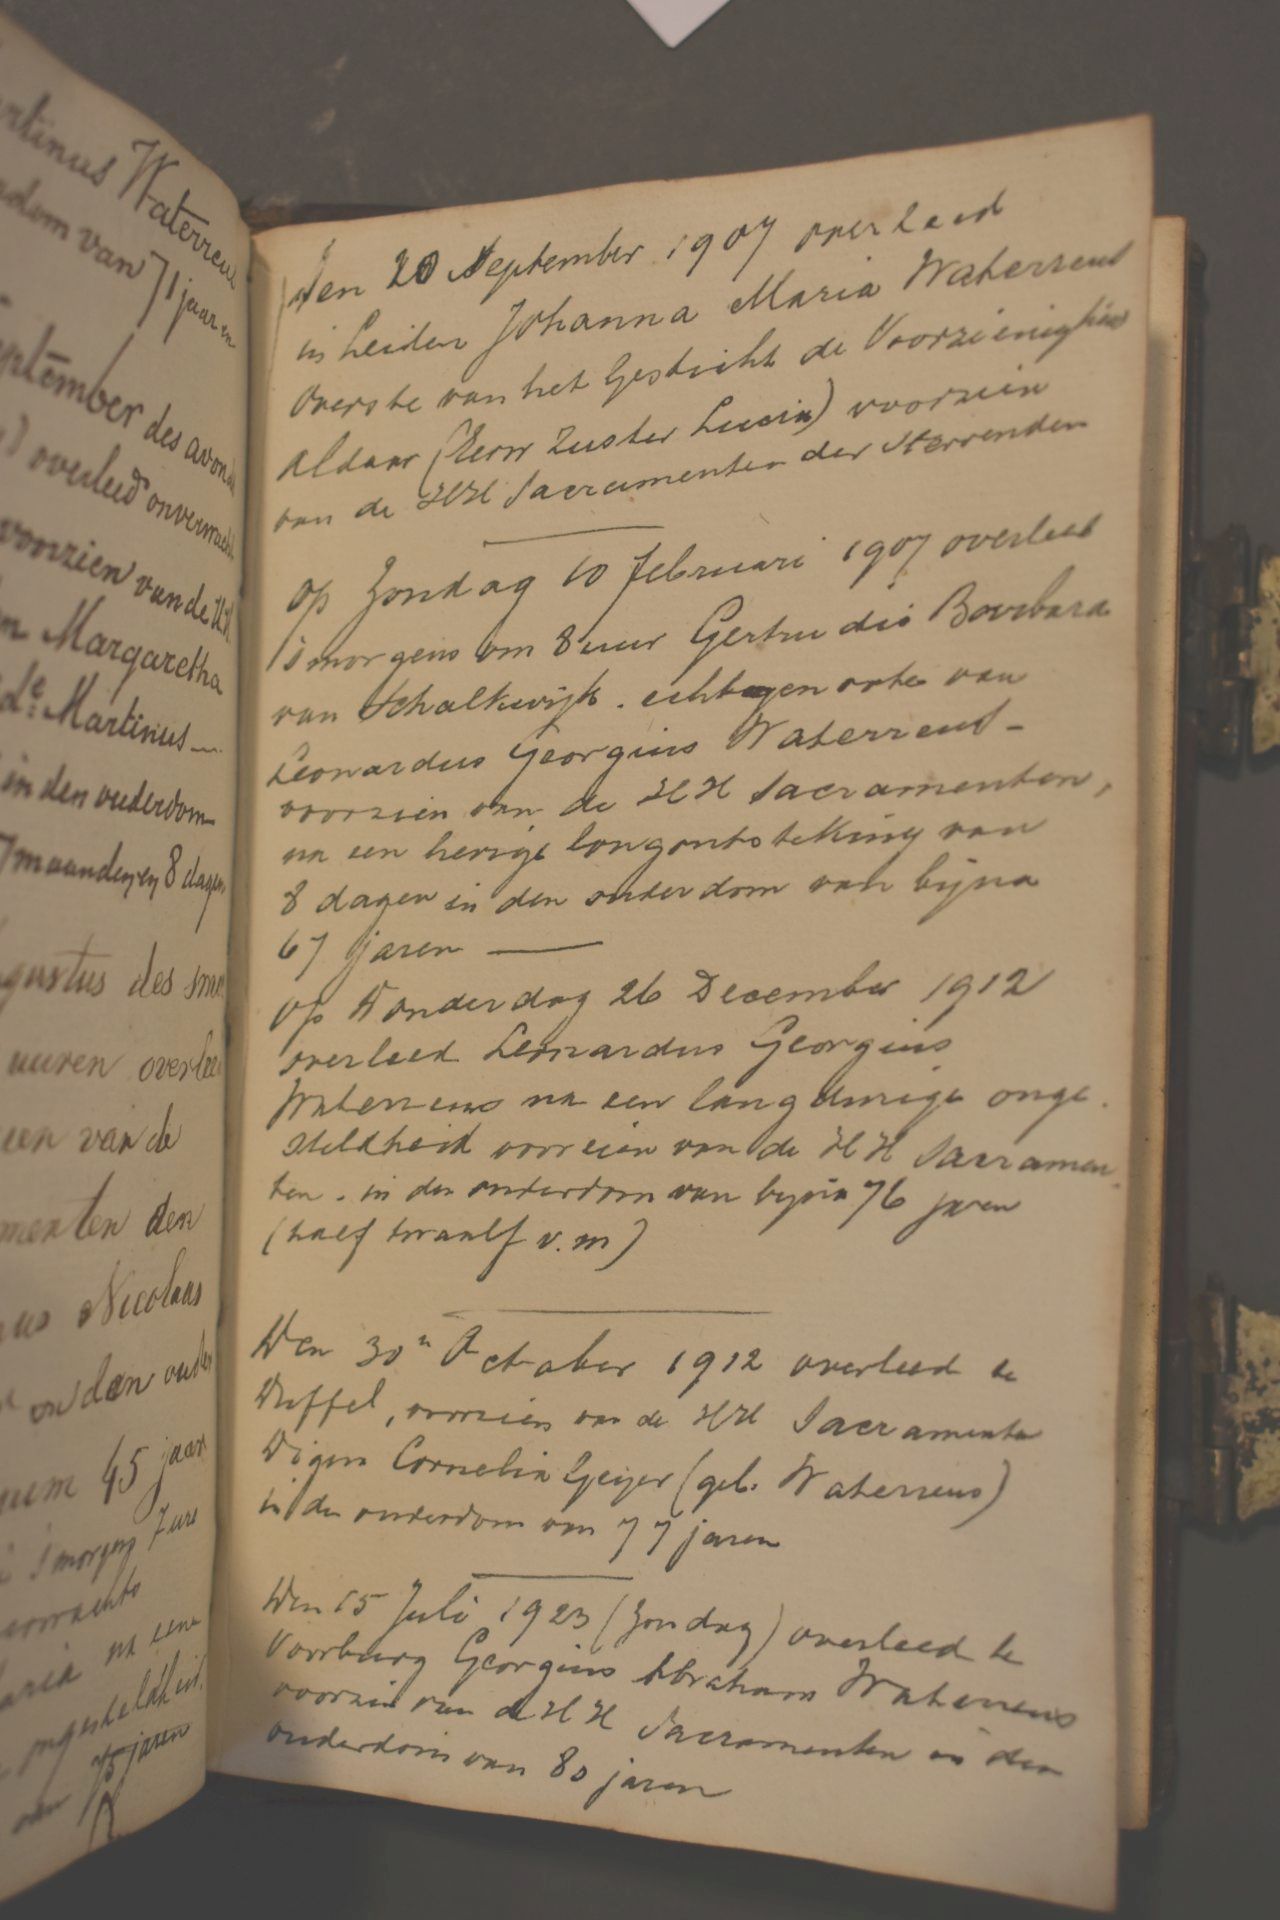 rtinus Waterreus
udom van 71 jaar en
eptember des avonds
overleed onverwacht
voorzien van de HH.
n Margaretha
Martinus
in den ouderdom
7 maanden en 8 dagen
gustus des smo
uuren overlee
een van de
menten den
us Nicolaas
den ouder
45 jaar
s morgens 7 ure
aria na eene
ongesteldheid.
van 75 jaren
Den 20 September 1907 overleed
in Leiden Johanna Maria Waterreus
Overste van het Gesticht de Voorzienigheid
Aldaar (Eerw Zuster Lucia) voorzien
van de HH Sacramenten der Stervenden
Op Zondag 10 Februari 1907 overleed
's morgens om 8 uur Gertrudis Barbara
van Schalkwijk. echtgenoote van
Leonardus Georgius Waterreus -
voorzien van de HH Sacramenten,
na een hevige longontsteking van
8 dagen in den ouderdom van bijna
67 jaren
Op Donderdag 26 December 1912
overleed Leonardus Georgius
Waterreus na een langdurige onge-
steldheid voorzien van de HH Sacramen-
ten. in den ouderdom van bijna 76 jaren
(half twaalf v.m)
Den 30n October 1912 overleed te
Duffel, voorzien van de HH Sacramenten
Digna Cornelia Geijer (geb. Waterreus)
in den ouderdom van 77 jaren
Den 15 Juli 1923 (Zondag) overleed te
Voorburg Georgius Abraham Waterreus
voorzien van de HH Sacramenten in den
ouderdom van 80 jaren